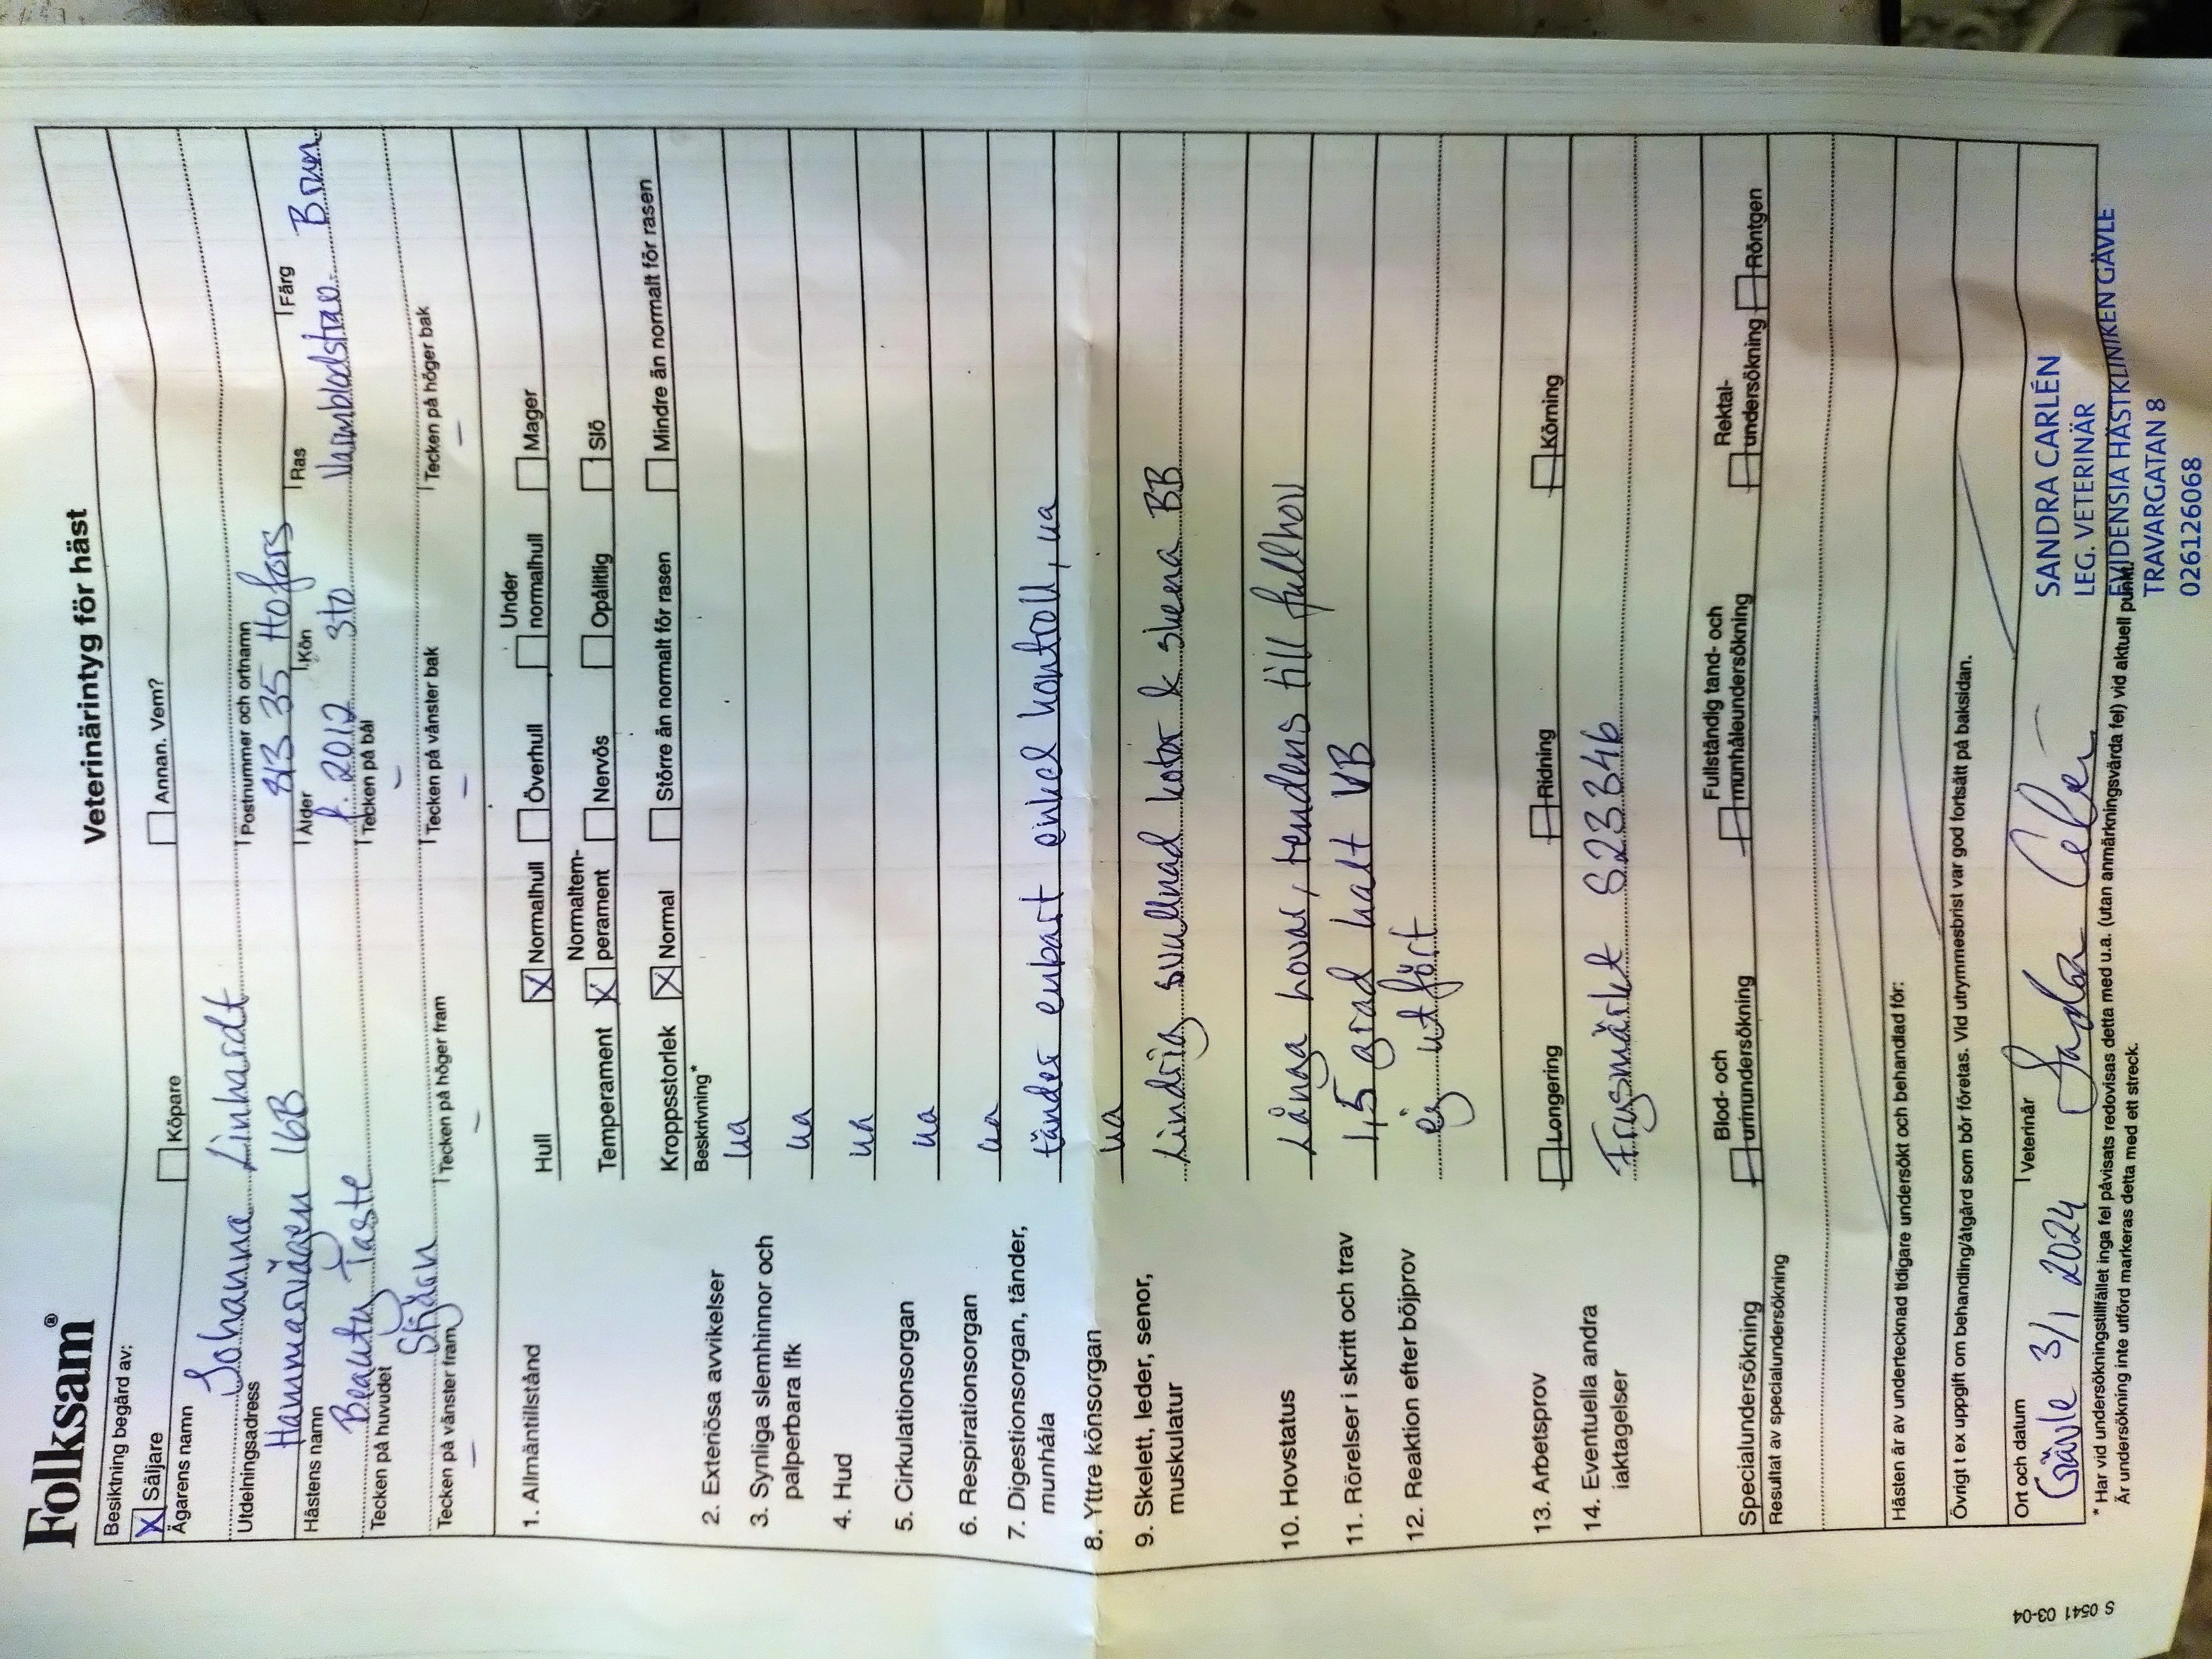 Folksam®
Veterinärintyg för häst
Besiktning begärd av:
X Säljare Köpare Annan. Vem?
Ägarens namn
Johanna Linhardt
Utdelningsadress Postnummer och ortnamn
Hammarvägen 16B 813 35 Hofors
Hästens namn Ålder Kön Ras Färg
Beauty Taste f. 2012 Sto Varmblodstrav Brun
Tecken på huvudet Tecken på bål
Stjärn –
Tecken på vänster fram Tecken på höger fram Tecken på vänster bak Tecken på höger bak
– – – –
1. Allmäntillstånd Hull X Normalhull Överhull Under normalhull Mager
Temperament X Normaltem-perament Nervös Opålitlig Slö
Kroppsstorlek X Normal Större än normalt för rasen Mindre än normalt för rasen
Beskrivning*
2. Exteriösa avvikelser ua
3. Synliga slemhinnor och
palperbara lfk ua
4. Hud ua
5. Cirkulationsorgan ua
6. Respirationsorgan ua
7. Digestionsorgan, tänder,
munhåla tänder enbart enkel kontroll, ua
8. Yttre könsorgan ua
9. Skelett, leder, senor,
muskulatur Lindrig svullnad kotor & skena BB
10. Hovstatus Långa hovar, tendens till fullhov
11. Rörelser i skritt och trav 1,5 grad halt VB
12. Reaktion efter böjprov ej utfört
13. Arbetsprov Longering Ridning Körning
14. Eventuella andra
iaktagelser Frysmärkt S23346
Specialundersökning Blod- och urinundersökning Fullständig tand- och munhåleundersökning Rektal-undersökning Röntgen
Resultat av specialundersökning
Hästen är av undertecknad tidigare undersökt och behandlad för:
Övrigt t ex uppgift om behandling/åtgård som bör företas. Vid utrymmesbrist var god fortsätt på baksidan.
Ort och datum Veterinär
Gävle 3/1 2024
SANDRA CARLÉN
LEG. VETERINÄR
EVIDENSIA HÄSTKLINIKEN GÄVLE
TRAVARGATAN 8
026126068
* Har vid undersökningstillfället inga fel påvisats redovisas detta med u.a. (utan anmärkningsvärda fel) vid aktuell punkt.
Är undersökning inte utförd markeras detta med ett streck.
S 0541 03-04